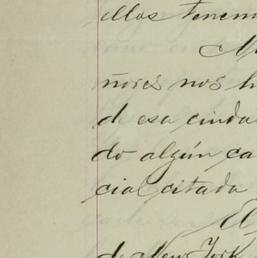 ellos tenem
ñores nos h
de esa ciuda
do algún ca
cial citada
El
de New York